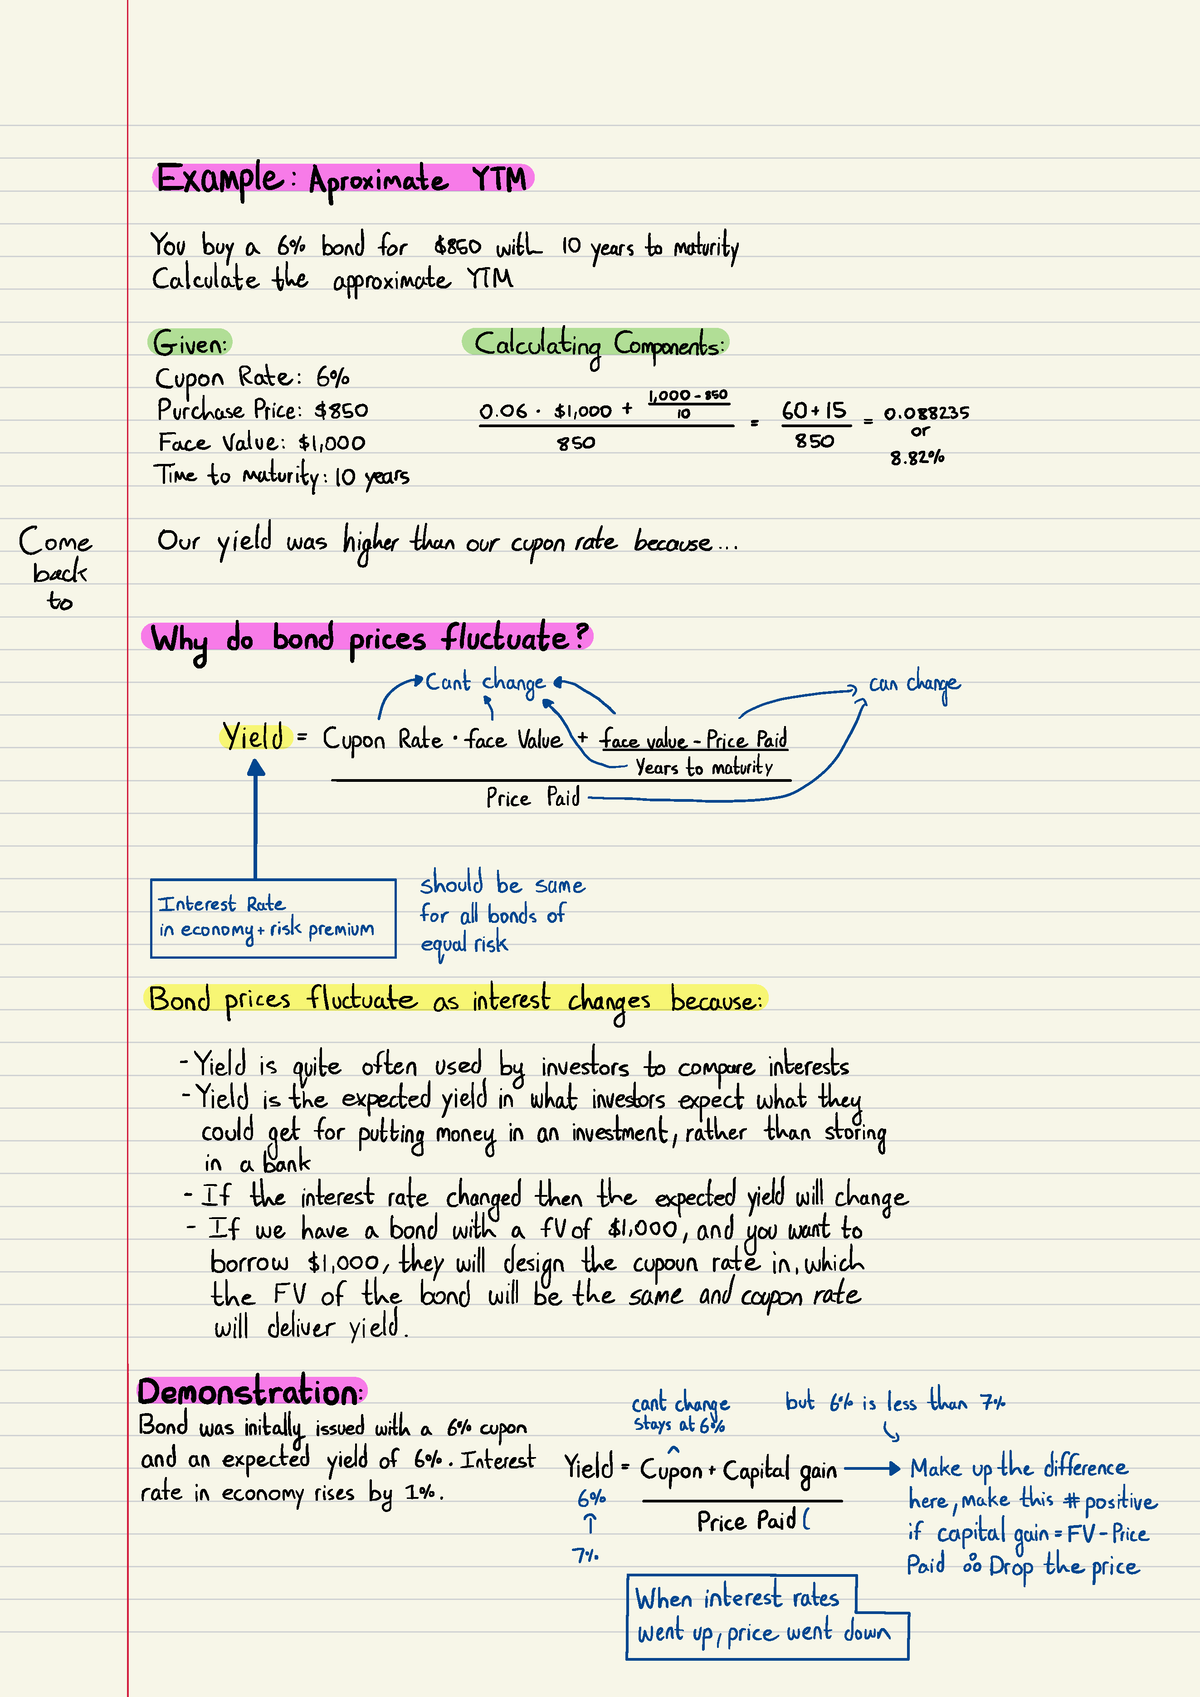 Example: Aproximate YTM
You buy a 6% bond for $850 with 10 years to maturity
Calculate the approximate YTM
Given:
Cupon Rate: 6%
Purchase Price: $850
Face Value: $1,000
Time to maturity: 10 years
Calculating Components:
0.06 · $1,000 + 1,000 - 850
10
850
=
60 + 15
850
= 0.088235
or
8.82%
Come
back
to
Our yield was higher than our cupon rate because...
Why do bond prices fluctuate?
Cant change
can change
Yield = Cupon Rate · face Value + face value - Price Paid
Years to maturity
Price Paid
Interest Rate
in economy + risk premium
should be same
for all bonds of
equal risk
Bond prices fluctuate as interest changes because:
- Yield is quite often used by investors to compare interests
- Yield is the expected yield in what investors expect what they
could get for putting money in an investment, rather than storing
in a bank
- If the interest rate changed then the expected yield will change
- If we have a bond with a fV of $1,000, and you want to
borrow $1,000, they will design the cupoun rate in, which
the FV of the bond will be the same and coupon rate
will deliver yield.
Demonstration:
Bond was initally issued with a 6% cupon
and an expected yield of 6%. Interest
rate in economy rises by 1%.
cant change
stays at 6%
but 6% is less than 7%
Yield = Cupon + Capital gain
Price Paid (
6%
↑
7%
Make up the difference
here, make this # positive
if capital gain = FV - Price
Paid ∴ Drop the price
When interest rates
went up, price went down